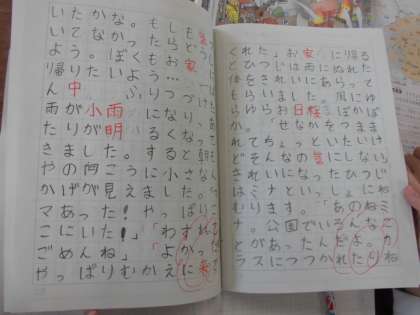 いたかな。もしも
いてなかったらど
よう。ぼくもお家
帰りたいよう…
雨が小雨になり
たりが明るくなって
きました。すると朝
やの向こうに小さな
かげが見えました。
マあった！やっぱり
ここにいた！」「わすれ
ごめんね」「よかっ
やっぱりむかえに来
くれた」お家に帰る
とひつじは雨にぬれた
体をきれいにあらって
もらいました。風にゆ
らゆらお日様ぽかぽか
か。「せなかをつまま
れてちょっといたいけ
どそんなの にしない。
きれいになったひつじ
はミナといっしょにね
むります。「あのねミ
ナ。公園でいろんなこ
とがあったんだよ。か
ラスにつつかれたり